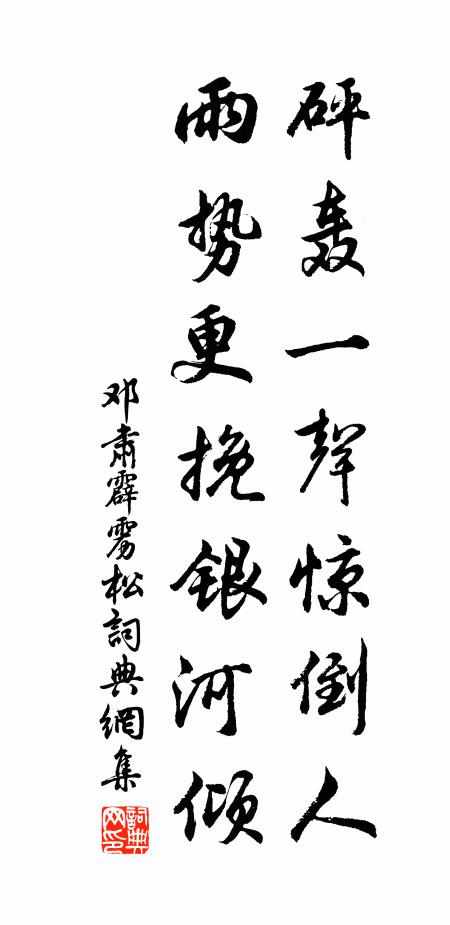 砰轰一聲惊倒人
雨势更挽银河倾
邓肃霹雳松詞典網集
詞典网印